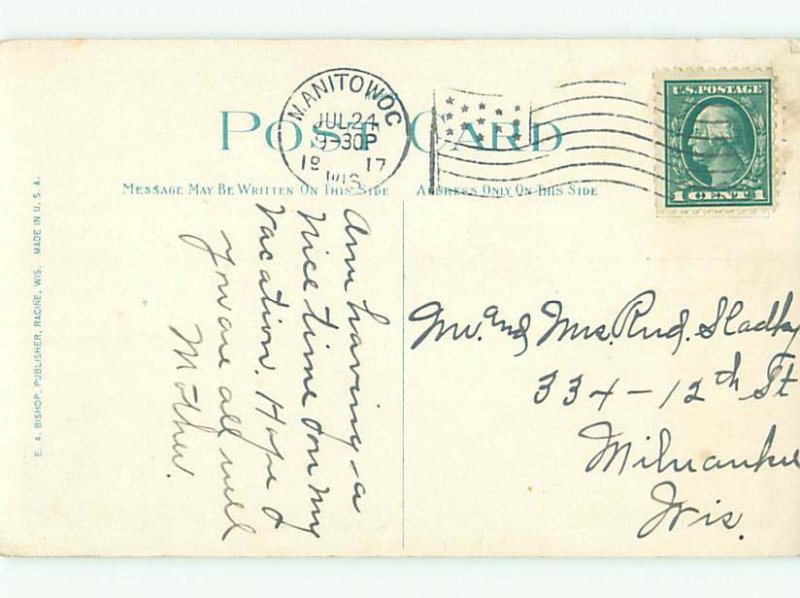 POST CARD
MANITOWOC
JUL 24
9-30P
19 17
WIS.
U.S. POSTAGE
1 CENT 1
MESSAGE MAY BE WRITTEN ON THIS SIDE
ADDRESS ONLY ON THIS SIDE
Am having a
nice time on my
vacation. Hope
you are all well
Mother.
Mr. and Mrs. Rud.
334-12th St
Milwaukee
Wis.
E. A. BISHOP, PUBLISHER, RACINE, WIS. MADE IN U. S. A.